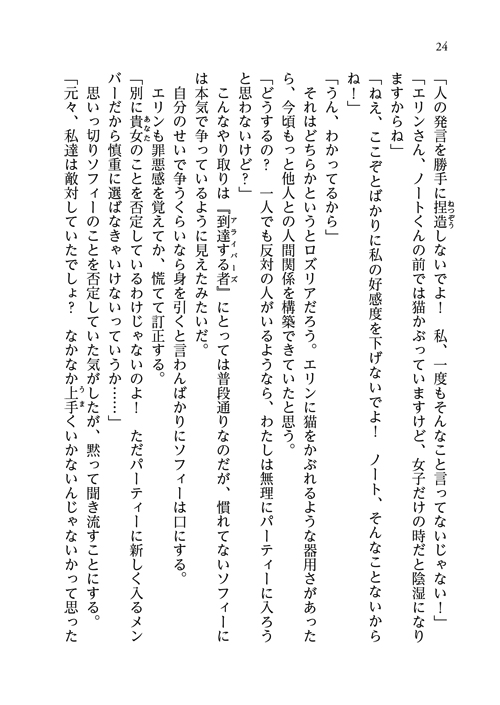 24
「人の発言を勝手に捏造しないでよ！　私、一度もそんなこと言ってないじゃない！」
「エリンさん、ノートくんの前では猫かぶっていますけど、女子だけの時だと陰湿になり
ますからね」
「ねえ、ここぞとばかりに私の好感度を下げないでよ！　ノート、そんなことないから
ね！」
「うん、わかってるから」
　それはどちらかというとロズリアだろう。エリンに猫をかぶれるような器用さがあった
ら、今頃もっと他人との人間関係を構築できていたと思う。
「どうするの？　一人でも反対の人がいるようなら、わたしは無理にパーティーに入ろう
と思わないけど？」
　こんなやり取りは『到達する者』にとっては普段通りなのだが、慣れてないソフィーに
は本気で争っているように見えたみたいだ。
　自分のせいで争うくらいなら身を引くと言わんばかりにソフィーは口にする。
　エリンも罪悪感を覚えてか、慌てて訂正する。
「別に貴女のことを否定しているわけじゃないのよ！　ただパーティーに新しく入るメン
バーだから慎重に選ばなきゃいけないっていうか……」
　思いっ切りソフィーのことを否定していた気がしたが、黙って聞き流すことにする。
「元々、私達は敵対していたでしょ？　なかなか上手くいかないんじゃないかって思った
ねつぞう
アライバーズ
あなた
うま